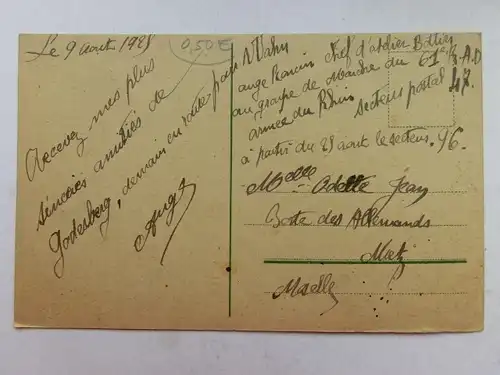 Le 9 aout 1925
0,50 E
Recevez mes plus
sincères amitiés de
Godesberg, demain en route pour Wahn
Ange
ange Chef d'atelier Bottier
au groupe de Marche du 61e R.A.D
armée du Rhin secteur postal 47.
à partir du 25 aout le secteur. 46.
Melle Odette Jean
Porte des Allemands
Metz
Moselle